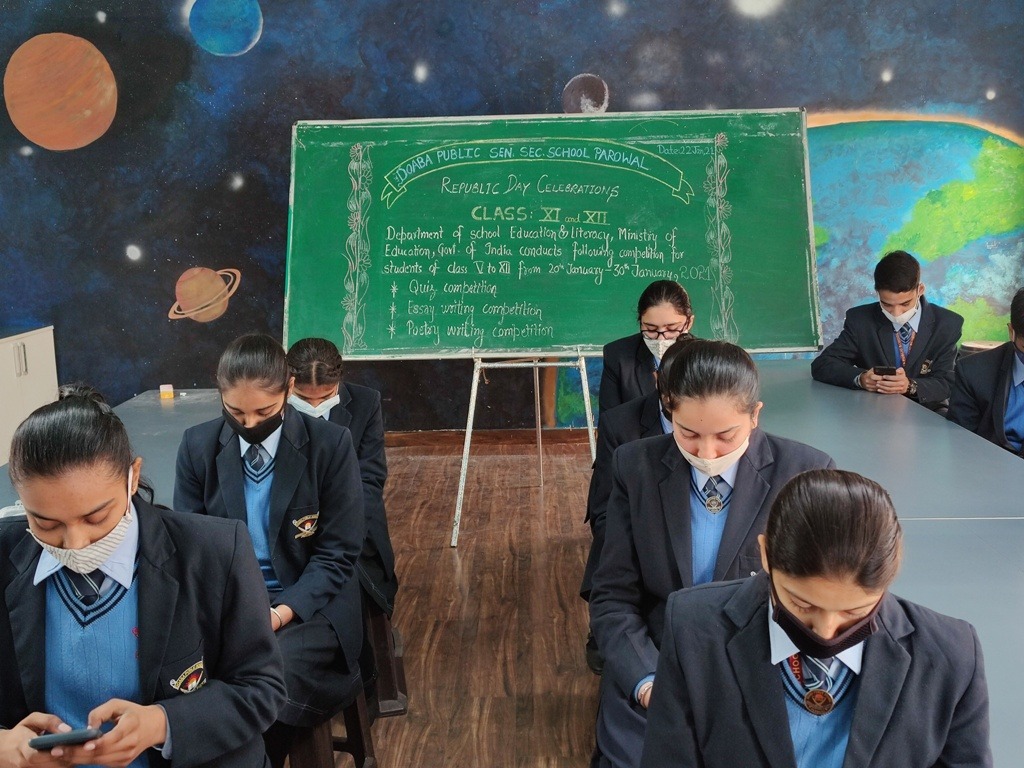 DOABA PUBLIC SEN. SEC. SCHOOL PAROWAL
Date:-22 Jan, 21
REPUBLIC DAY CELEBRATIONS
CLASS: XI and XII
Department of school Education & literacy, Ministry of
Education, Govt. of India conducts following competition for
students of class V to XII from 20th January - 30th January, 2021
* Quiz competition
* Essay writing competition
* Poetry writing competition